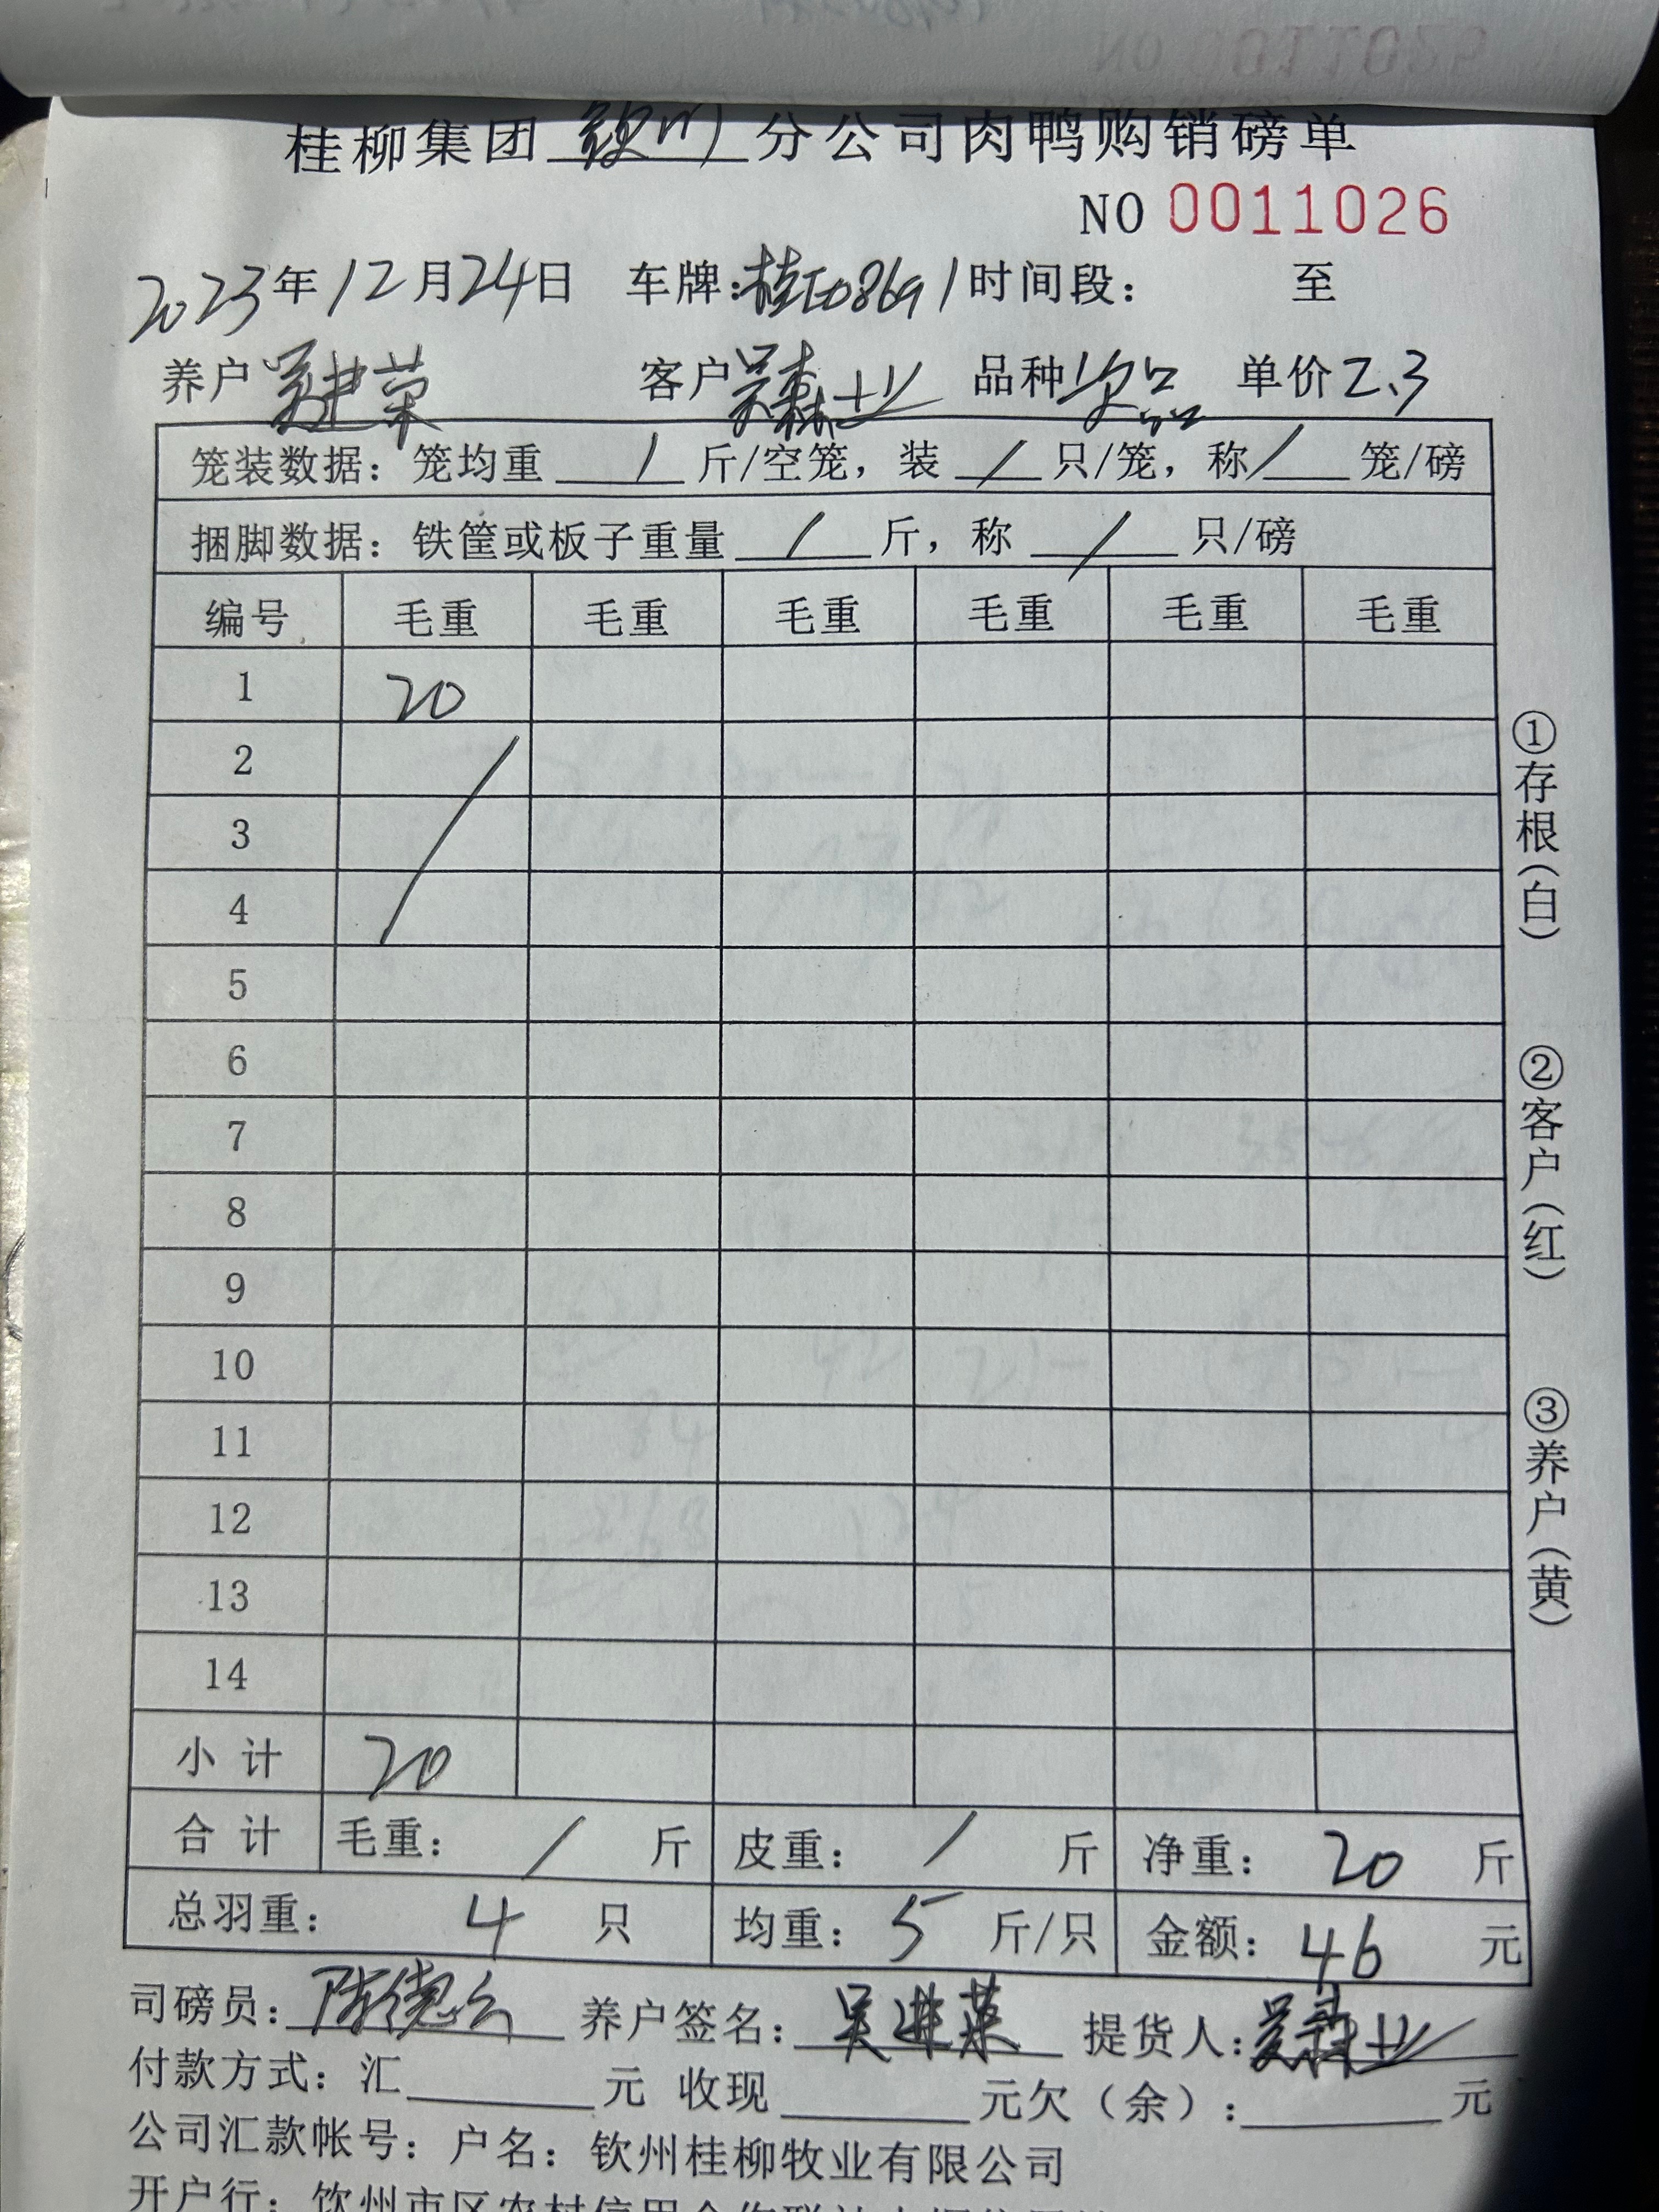 桂柳集团 钦州 分公司肉鸭购销磅单
NO 0011026
2023年12月24日 车牌:桂E08691 时间段: 至
养户 吴进荣 客户 吴森业 品种 次品 单价 2.3
笼装数据: 笼均重 / 斤/空笼, 装 / 只/笼, 称 / 笼/磅
捆脚数据: 铁筐或板子重量 / 斤, 称 / 只/磅
编号 毛重 毛重 毛重 毛重 毛重 毛重
1 20
2
3
4
5
6
7
8
9
10
11
12
13
14
小计 20
合计 毛重: / 斤 皮重: / 斤 净重: 20 斤
总羽重: 4 只 均重: 5 斤/只 金额: 46 元
司磅员: 陈德云 养户签名: 吴进荣 提货人: 吴森业
付款方式: 汇 元 收现 元欠(余): 元
公司汇款帐号: 户名: 钦州桂柳牧业有限公司
开户行: 钦州市区农村信用合作联社
①存根(白)
②客户(红)
③养户(黄)